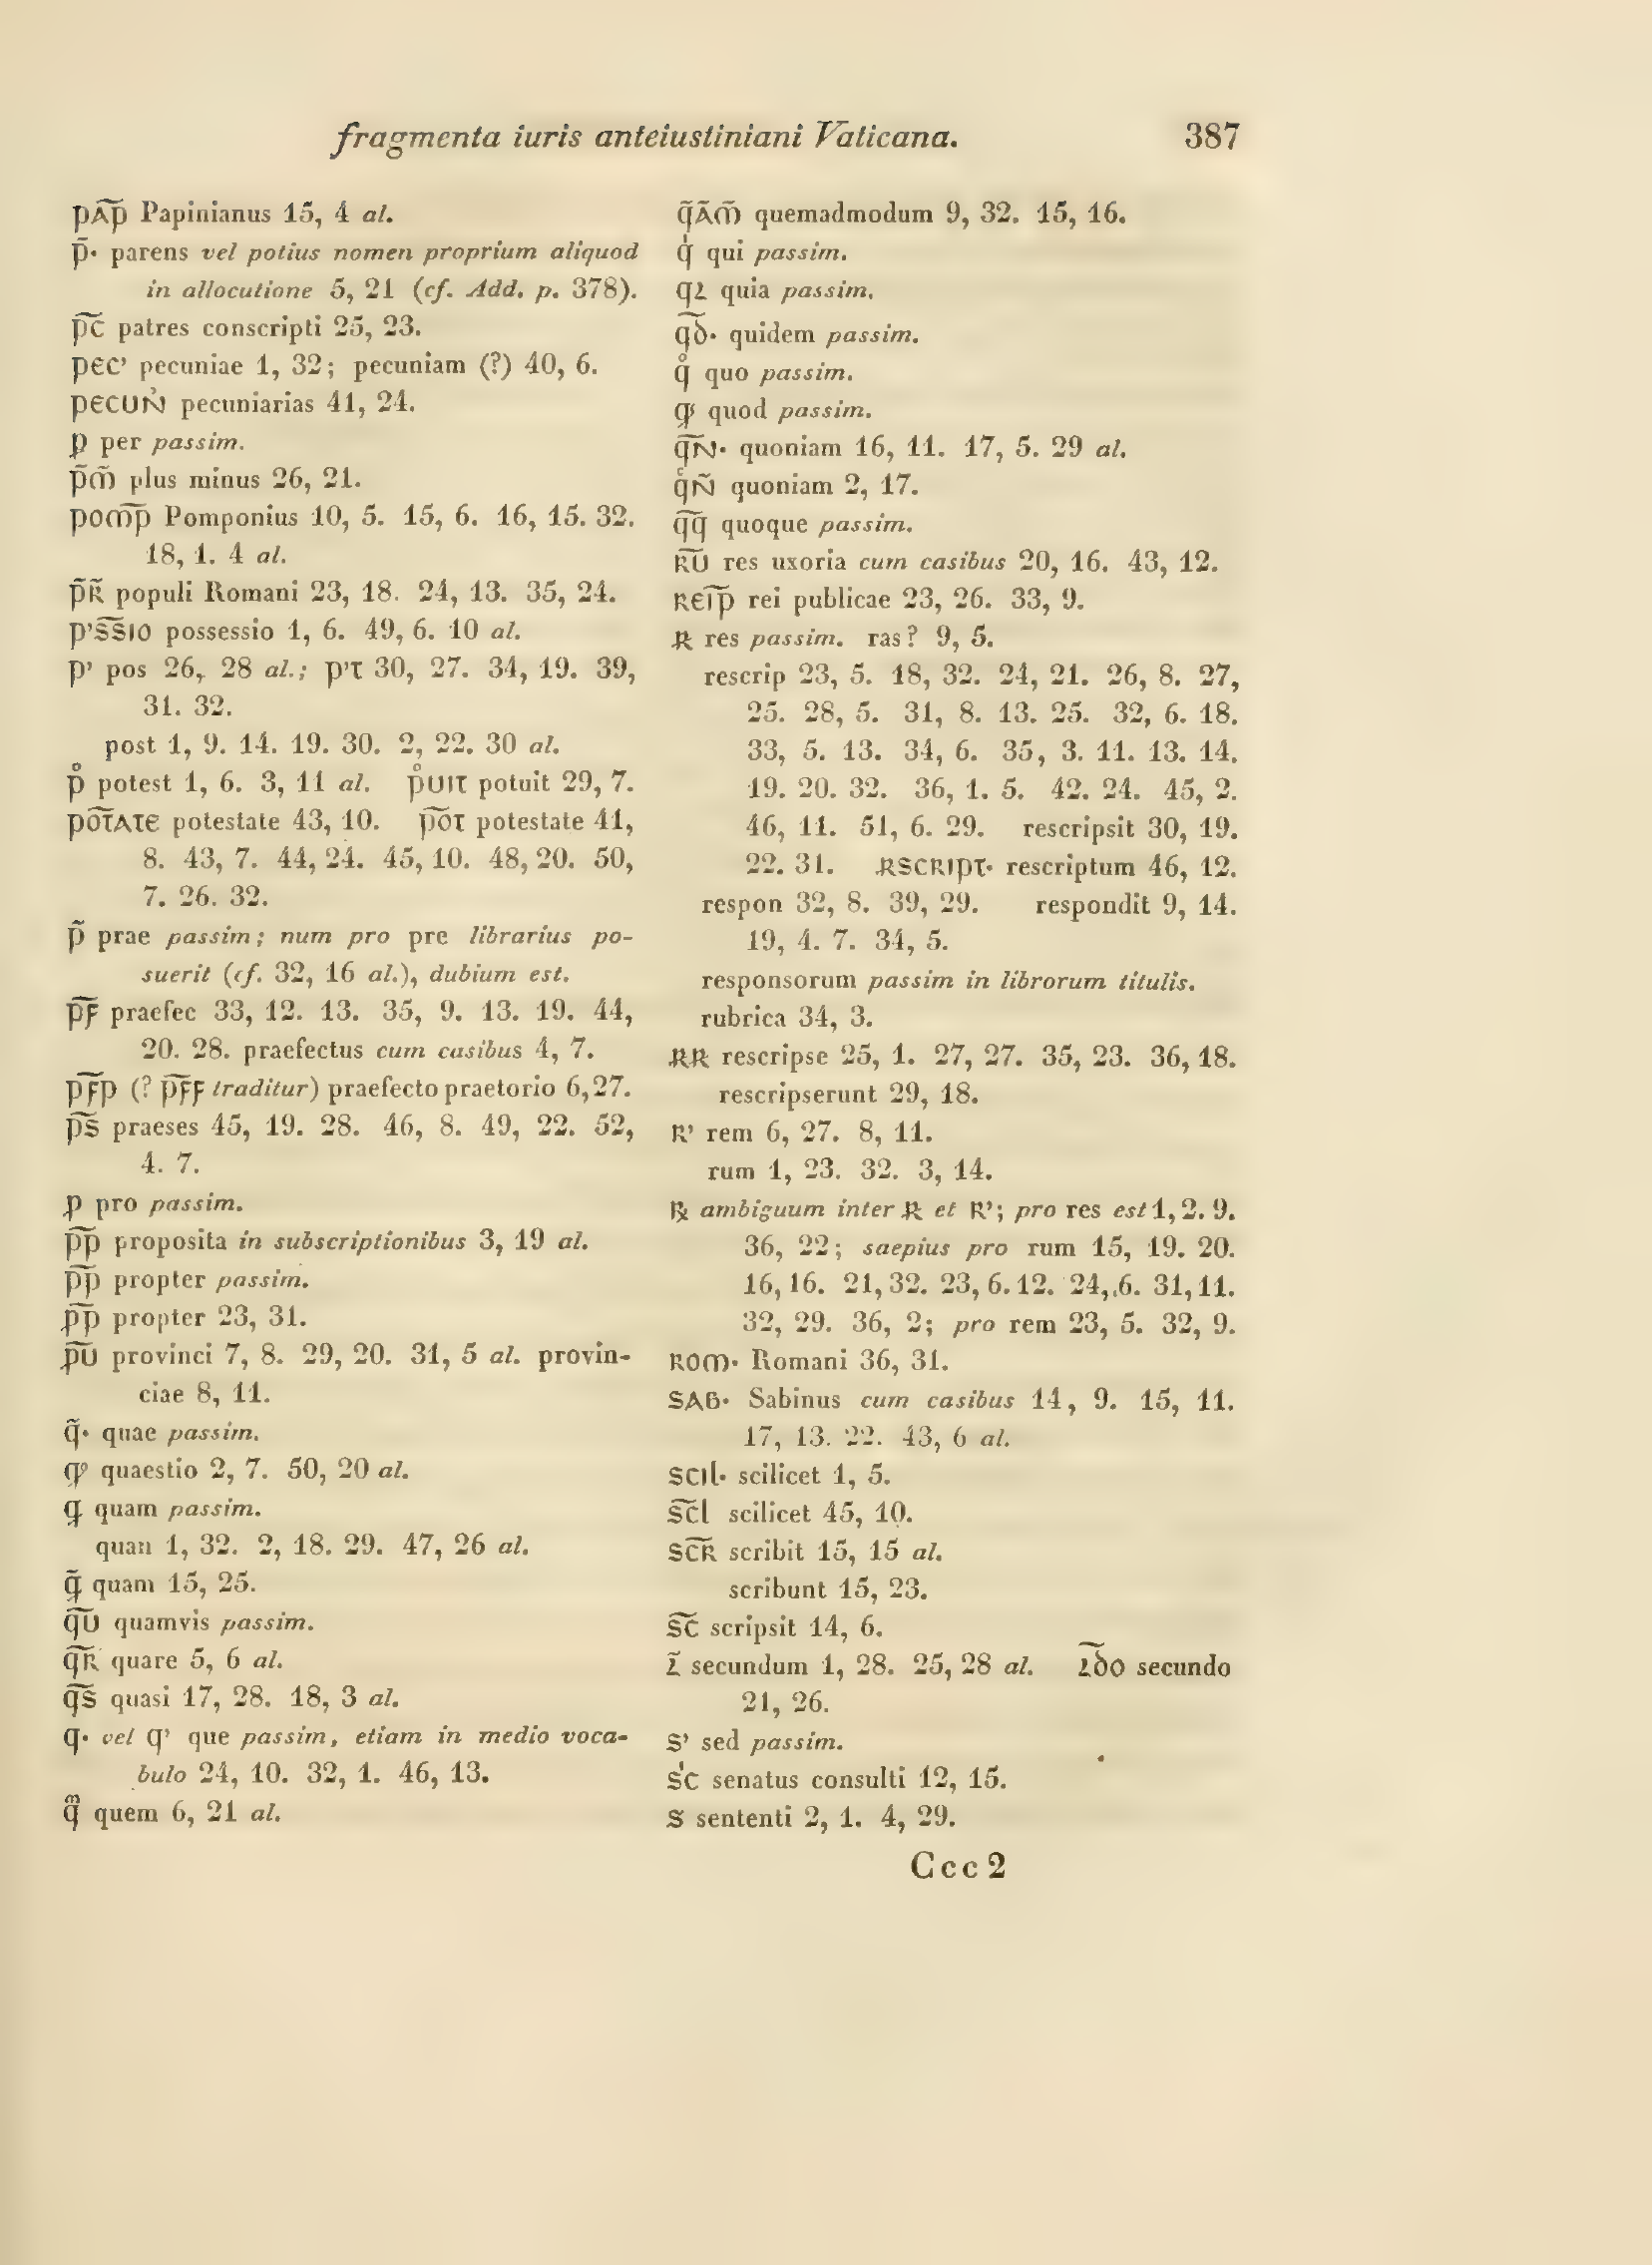 fragmenta iuris anteiustiniani Vaticana. 387
pAp̃ Papinianus 15, 4 al.
p̃· parens vel potius nomen proprium aliquod
in allocutione 5, 21 (cf. Add. p. 378).
p͠c patres conscripti 25, 23.
pec’ pecuniae 1, 32; pecuniam (?) 40, 6.
pecuN̓ pecuniarias 41, 24.
ꝑ per passim.
p̃m̃ plus minus 26, 21.
pom͠p Pomponius 10, 5. 15, 6. 16, 15. 32.
18, 1. 4 al.
p̃R̃ populi Romani 23, 18. 24, 13. 35, 24.
p’s͠sio possessio 1, 6. 49, 6. 10 al.
p’ pos 26, 28 al.; p’τ 30, 27. 34, 19. 39,
31. 32.
post 1, 9. 14. 19. 30. 2, 22. 30 al.
p̊ potest 1, 6. 3, 11 al. p̊uιτ potuit 29, 7.
po͠τATe potestate 43, 10. p͠oτ potestate 41,
8. 43, 7. 44, 24. 45, 10. 48, 20. 50,
7. 26. 32.
p̃ prae passim; num pro pre librarius po-
suerit (cf. 32, 16 al.), dubium est.
p͠f praefec 33, 12. 13. 35, 9. 13. 19. 44,
20. 28. praefectus cum casibus 4, 7.
p͠fp (? p͠ff traditur) praefecto praetorio 6,27.
p͠s praeses 45, 19. 28. 46, 8. 49, 22. 52,
4. 7.
ꝓ pro passim.
p͠p proposita in subscriptionibus 3, 19 al.
p͠p propter passim.
ꝓ͠p propter 23, 31.
ꝓ͠u provinci 7, 8. 29, 20. 31, 5 al. provin-
ciae 8, 11.
q̃· quae passim.
qꝰ quaestio 2, 7. 50, 20 al.
ꝗ quam passim.
quan 1, 32. 2, 18. 29. 47, 26 al.
ꝗ̃ quam 15, 25.
q͠u quamvis passim.
q͠R quare 5, 6 al.
q͠s quasi 17, 28. 18, 3 al.
q· vel q’ que passim, etiam in medio voca-
bulo 24, 10. 32, 1. 46, 13.
qͫ quem 6, 21 al.
q̃Ãm̃ quemadmodum 9, 32. 15, 16.
qͥ qui passim.
qꝛ quia passim.
q͠δ· quidem passim.
q̊ quo passim.
ꝙ quod passim.
q͠N· quoniam 16, 11. 17, 5. 29 al.
q̊Ñ quoniam 2, 17.
q͠q quoque passim.
R͠U res uxoria cum casibus 20, 16. 43, 12.
Reι͠p rei publicae 23, 26. 33, 9.
Ꞧ res passim. ras? 9, 5.
rescrip 23, 5. 18, 32. 24, 21. 26, 8. 27,
25. 28, 5. 31, 8. 13. 25. 32, 6. 18.
33, 5. 13. 34, 6. 35, 3. 11. 13. 14.
19. 20. 32. 36, 1. 5. 42. 24. 45, 2.
46, 11. 51, 6. 29. rescripsit 30, 19.
22. 31. ꞦSCRIpτ· rescriptum 46, 12.
respon 32, 8. 39, 29. respondit 9, 14.
19, 4. 7. 34, 5.
responsorum passim in librorum titulis.
rubrica 34, 3.
ꞦꞦ rescripse 25, 1. 27, 27. 35, 23. 36, 18.
rescripserunt 29, 18.
R’ rem 6, 27. 8, 11.
rum 1, 23. 32. 3, 14.
℞ ambiguum inter Ꞧ et R’; pro res est 1, 2. 9.
36, 22; saepius pro rum 15, 19. 20.
16, 16. 21, 32. 23, 6. 12. 24, 6. 31, 11.
32, 29. 36, 2; pro rem 23, 5. 32, 9.
Rom· Romani 36, 31.
SAB· Sabinus cum casibus 14, 9. 15, 11.
17, 13. 22. 43, 6 al.
scιl· scilicet 1, 5.
s͠cl scilicet 45, 10.
sc͠R scribit 15, 15 al.
scribunt 15, 23.
s͠c scripsit 14, 6.
ꝛ̃ secundum 1, 28. 25, 28 al. ꝛ͠δo secundo
21, 26.
s’ sed passim.
s̓c senatus consulti 12, 15.
s sententi 2, 1. 4, 29.
Ccc 2